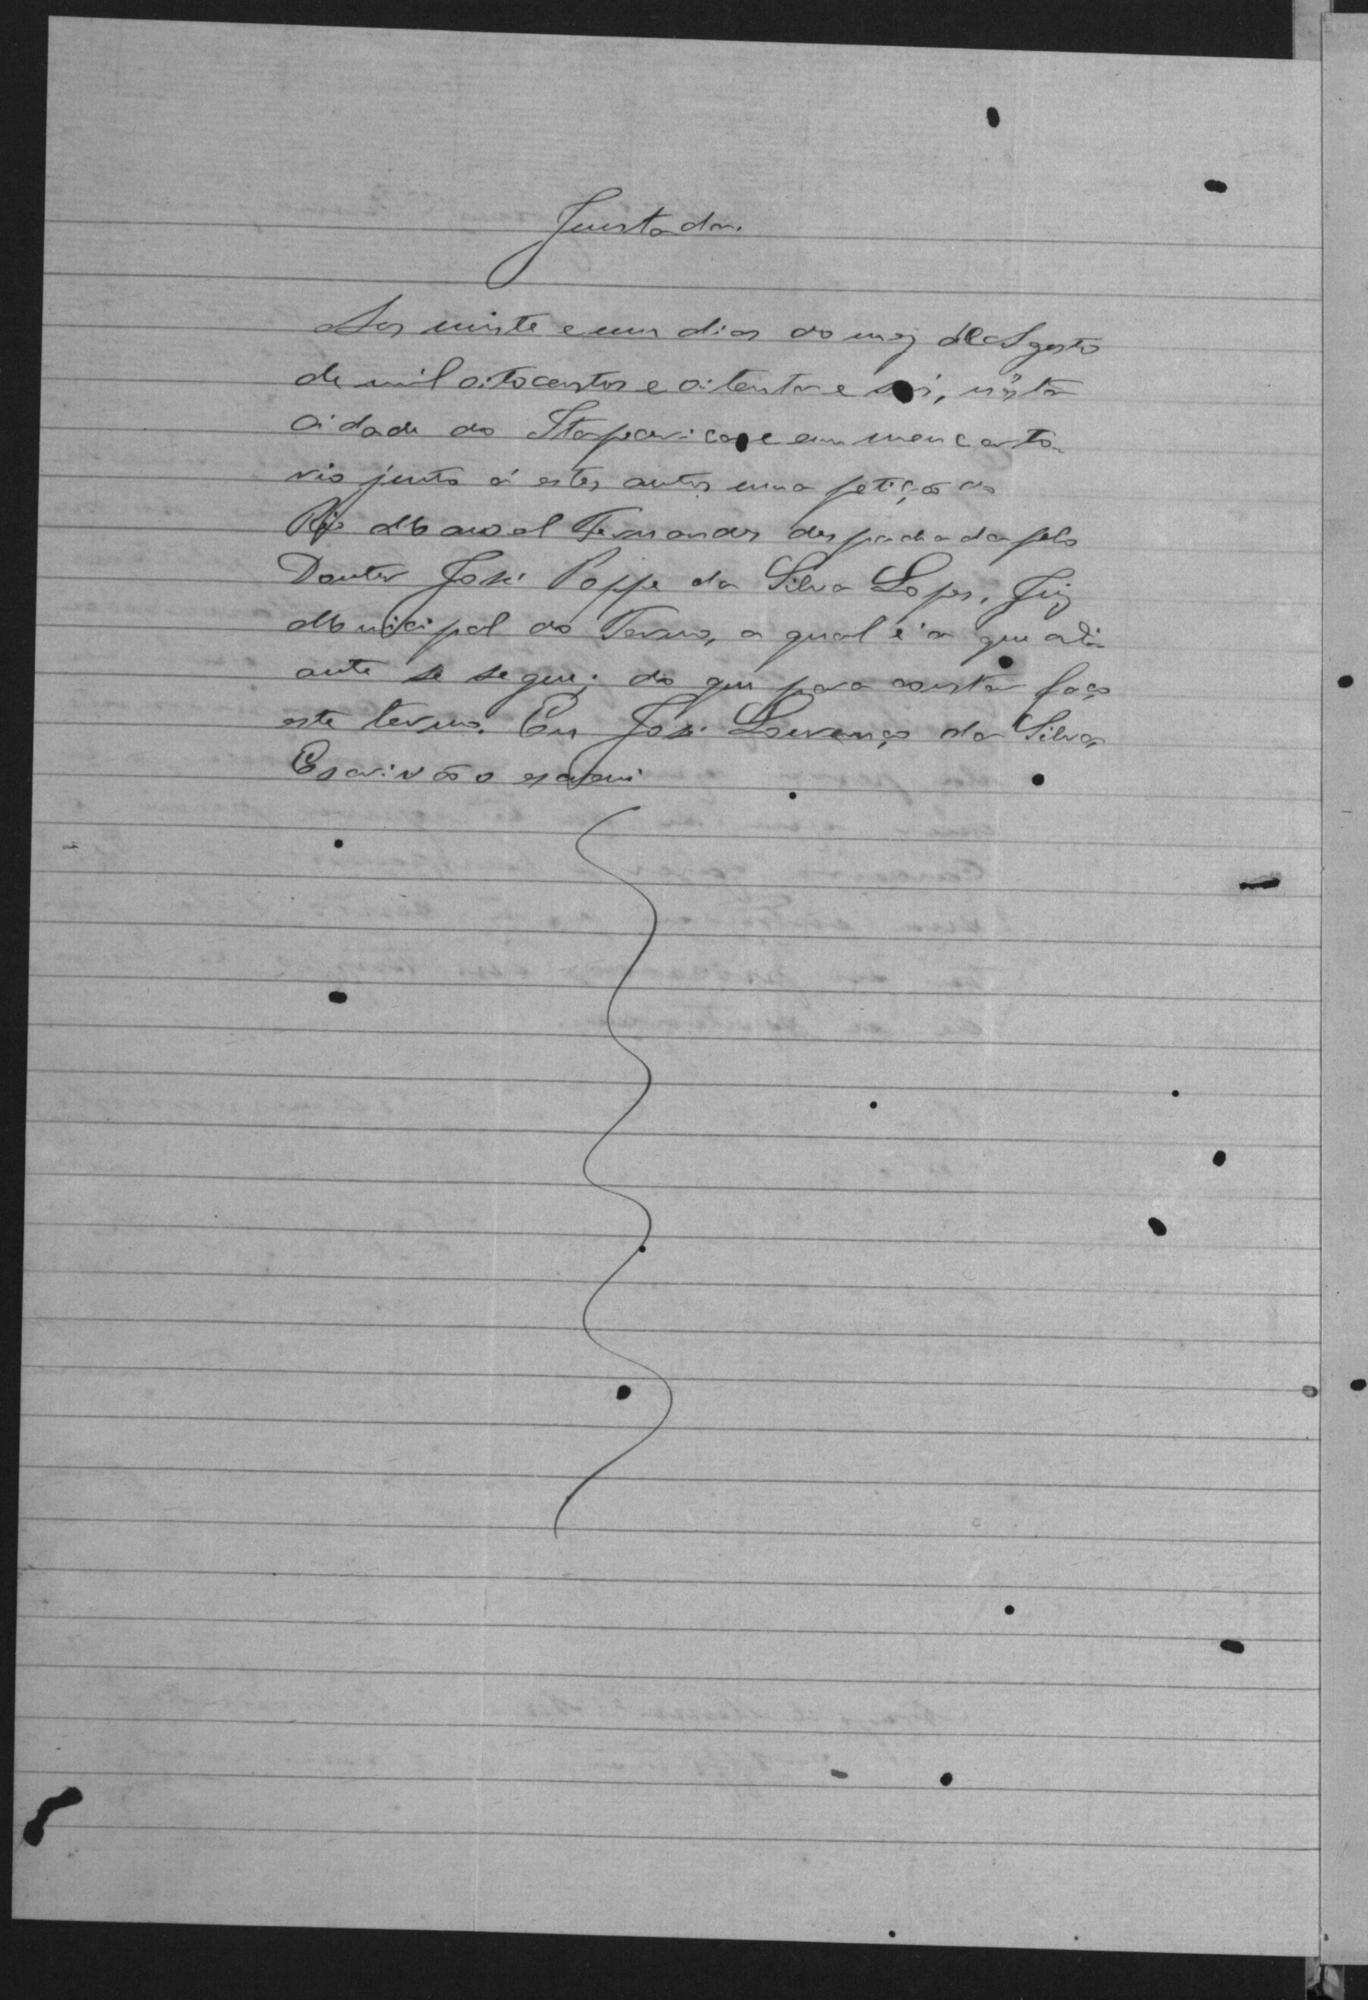 Juntada.
Aos vinte e um dias do mez de Agosto
de mil oitocentos e oitenta e seis, nésta
Cidade de Itaparica, e em meu carto
rio junto á estes autos uma petição do
Réo Manoel Fernandes despachada pelo
Doutor José Poppe da Silva Lopes, Juiz
Municipal do Termo, a qual é a que adi
ante se segue; do que para constar faço
este termo. Eu José Lourenço da Silva,
Escrivão o escrevi